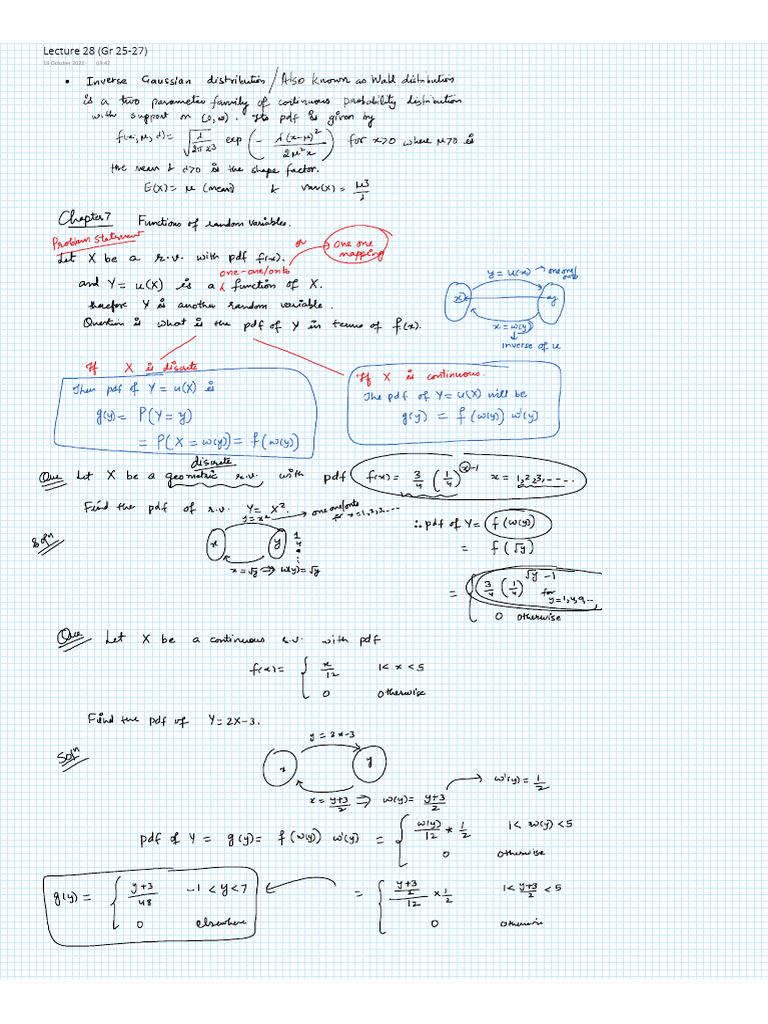 Lecture 28 (Gr 25-27)
19 October 2022 09:42
• Inverse Gaussian distribution / Also known as Wald distribution
is a two parameter family of continuous probability distribution
with support on (0,∞). Its pdf is given by
f(x; μ, λ) = √(λ/2πx³) exp (- λ(x-μ)²/2μ²x) for x>0 where μ>0 is
the mean & λ>0 is the shape factor.
E(X) = μ (mean) & var(X) = μ³/λ
Chapter 7 Functions of random variables.
Problem Statement
or → one one mapping
Let X be a r.v. with pdf f(x).
one-one/onto
and Y = u(X) is a function of X.
therefore Y is another random variable.
Question is what is the pdf of Y in terms of f(x).
y = u(x) → one one/onto
x y
x = w(y)
↓
inverse of u
If X is discrete
Then pdf of Y = u(X) is
g(y) = P(Y = y)
= P(X = w(y)) = f(w(y))
If X is continuous.
The pdf of Y = u(X) will be
g(y) = f(w(y)) w'(y)
discrete
Que Let X be a geometric r.v. with pdf f(x) = 3/4 (1/4)^(x-1) x = 1,2,3,----.
Find the pdf of r.v. Y = X².
Solⁿ
y = x² → one one/onto for x=1,2,3,---
x y 1 4 9 ⋮
x = √y ⇒ w(y) = √y
∴ pdf of Y = f(w(y))
= f(√y)
= { 3/4 (1/4)^(√y -1) for y=1,4,9,--,
0 otherwise
Que Let X be a continuous r.v. with pdf
f(x) = { x/12 1 < x < 5
0 otherwise
Find the pdf of Y = 2X-3.
Solⁿ
y = 2x-3
x y
x = y+3/2 ⇒ w(y) = y+3/2 → w'(y) = 1/2
pdf of Y = g(y) = f(w(y)) w'(y) = { w(y)/12 * 1/2 1 < w(y) < 5
0 otherwise
= { (y+3/2)/12 × 1/2 1 < y+3/2 < 5
0 otherwise
g(y) = { y+3/48 -1 < y < 7
0 elsewhere